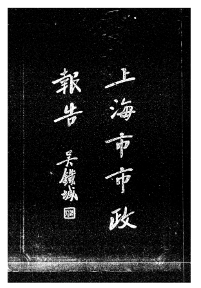 上海市市政
報告
吳鐵城